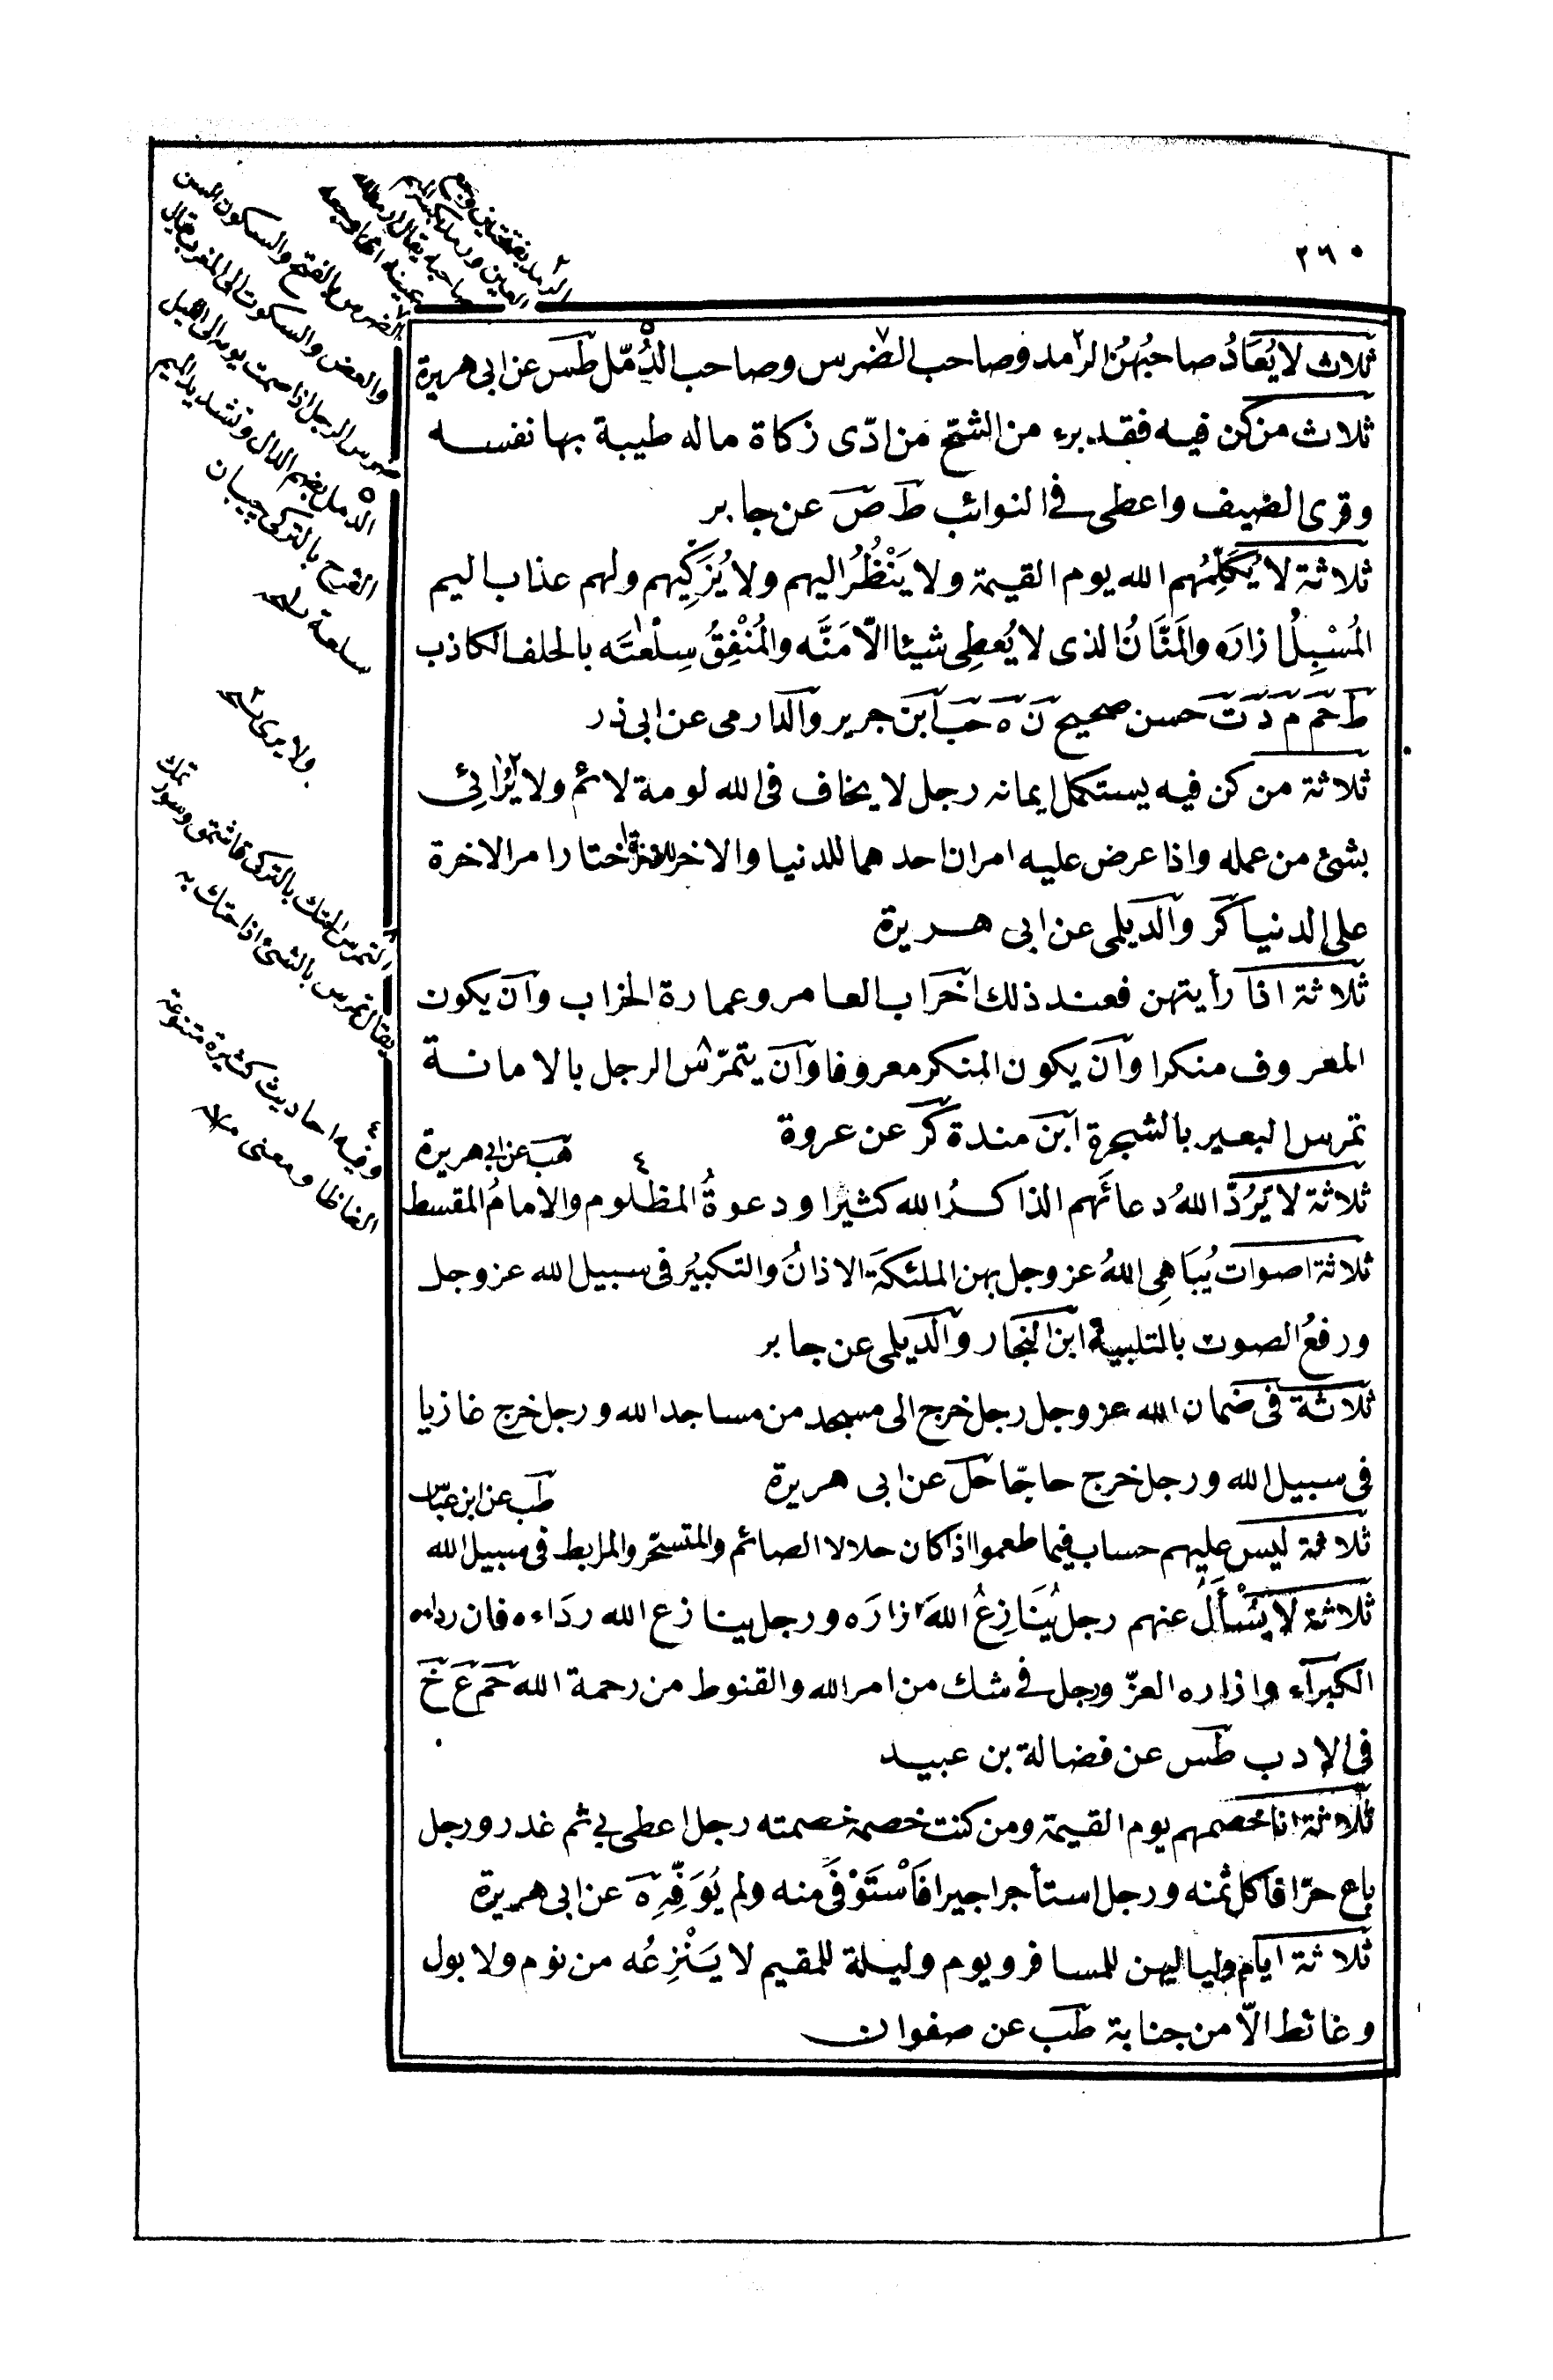 ٢٦٠
ثلاث لا يُعَادُ صاحبُهُنَّ الرّمد وصاحب الضرس وصاحب الدُّمّل طس عن ابى هريرة
ثلاث من كن فيه فقد برء من الشحّ من ادّى زكاة ماله طيبة بها نفسه
وقرى الضيف واعطى فى النوائب ط ص عن جابر
ثلاثة لا يُكَلِّمُهم الله يوم القيمة ولا يَنْظُرُ اليهم ولا يُزَكِّيهم ولهم عذاب اليم
المُسْبِلُ ازارَه والمَنَّانُ الذى لا يُعطِى شيئا الّا مَنَّه والمُنْفِقُ سِلْعَتَه بالحلف الكاذب
ط حم م د ت حسن صحيح ن ه حب ابن جرير والدارمى عن ابى ذر
ثلاثة من كن فيه يستكمل ايمانه رجل لا يخاف فى الله لومة لائم ولا يُرَائِى
بشئ من عمله واذا عرض عليه امران احدهما للدنيا والاخر للاخرة اختار امر الاخرة
على الدنيا كر والديلمى عن ابى هريرة
ثلاثة اذا رأيتهن فعند ذلك اخراب العامر وعمارة الخراب وان يكون
المعروف منكرا وان يكون المنكر معروفا وان يتمرّس الرجل بالامانة
تمرس البعير بالشجرة ابن مندة كر عن عروة
هب عن ابى هريرة
ثلاثة لا يَرُدّ اللهُ دعائَهم الذاكرُ الله كثيرا ودعوةُ المظلوم والامامُ المقسط
ثلاثة اصوات يُبَاهِى اللهُ عز وجل بهن الملئكةَ الاذانُ والتكبيُر فى سبيل الله عز وجل
ورفعُ الصوت بالتلبية ابن النجار والديلمى عن جابر
ثلاثة فى ضمان الله عز وجل رجل خرج الى مسجد من مساجد الله ورجل خرج غازيا
فى سبيل الله ورجل خرج حاجّا حل عن ابى هريرة
طب عن ابن عبّاس
ثلاثة ليس عليهم حساب فيما طعموا اذا كان حلالا الصائم والمتسحّر والمرابط فى سبيل الله
ثلاثة لا يَسْأَلُ عنهم رجل يُنَازِعُ اللهَ ازارَه ورجل ينازع الله ردَاءه فان رداءه
الكبرآء وازاره العزّ ورجل فى شك من امر الله والقنوط من رحمة الله حم ع خ
فى الادب طس عن فضالة بن عبيد
ثلاثة انا خصمهم يوم القيمة ومن كنت خصمه خصمته رجل اعطى بى ثم غدر ورجل
باع حرّا فاكل ثمنه ورجل استأجر اجيرا فَاسْتَوْفَى منه ولم يُوَفِّهِ ه عن ابى هريرة
ثلاثة ايام ولياليهن للمسافر ويوم وليلة للمقيم لا يَنْزِعُه من نوم ولا بول
وغائط الّا من جنابة طب عن صفوان
الرمد بفتحتين وجع
العين ورمد بكسر الميم
صاحبه يقال
عينه
الضرس بالفتح والسكون السن
والعض والسكوت الى المغرب يقال
ضرس الرجل اذا صمت يومه الى الليل
الدمل بضم الدال وتشديد الميم
القرح بالتركى چيبان
سلعة نسخه
ولا يرى نسخه
التمرس بالتركى قاشنمق وسورتمك
يقال تمرس بالشئ اذا احتك به
وفيه احاديث كثيرة متنوعة
الفاظا ومعنى منه